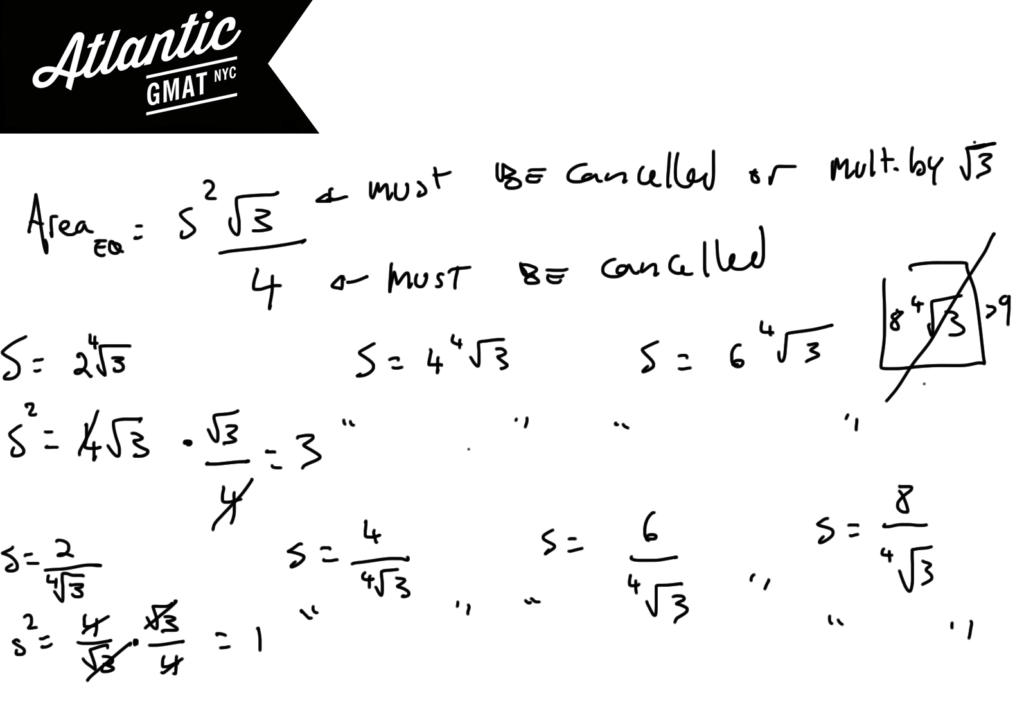 Atlantic
GMAT NYC
Area EQ = s²√3 ← must BE cancelled or mult. by √3
4 ← must BE cancelled
S = 2⁴√3 S = 4⁴√3 S = 6⁴√3 8⁴√3 >9
s² = 4√3 · √3/4 = 3 " " " "
s = 2/⁴√3 s = 4/⁴√3 s = 6/⁴√3 s = 8/⁴√3
s² = 4/√3 · √3/4 = 1 " " " " " "